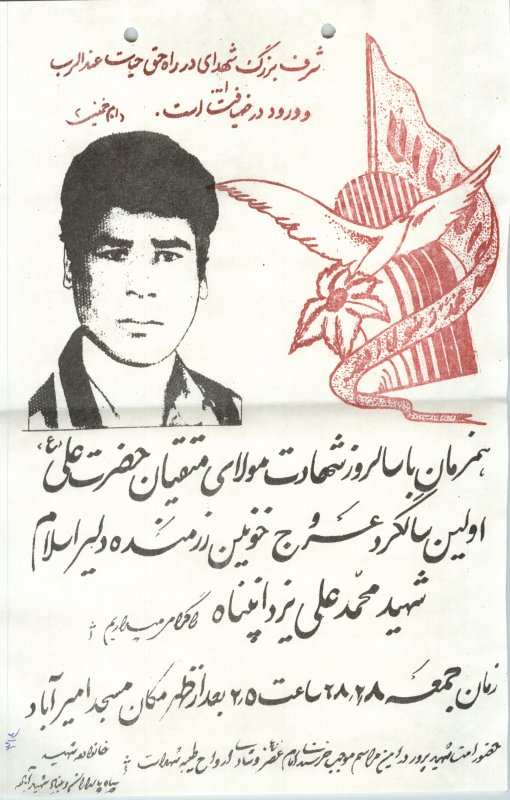 شرف بزرگ شهدای در راه حق حیات عندالرب
و ورود در ضیافت ا... است.
امام خمینی
همزمان با سالروز شهادت مولای متقیان حضرت علی (ع)
اولین سالگرد عروج خونین رزمنده دلیر اسلام
شهید محمد علی یزدانپناه را گرامی میداریم
زمان جمعه ۲۸/۲/۶۸ ساعت ۲/۵ بعد از ظهر مکان مسجد امیرآباد
حضور امت شهیدپرور در این مراسم موجب خرسندی امام عصر و شادی ارواح طیبه شهداست
خانواده شهید
سپاه پاسداران و بنیاد شهید